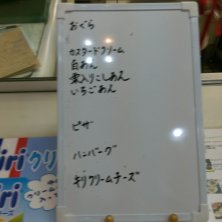 おぐら
カスタードクリーム
白あん
栗入りこしあん
いちごあん
ピザ
ハンバーグ
キリクリームチーズ
iri クリ
iri